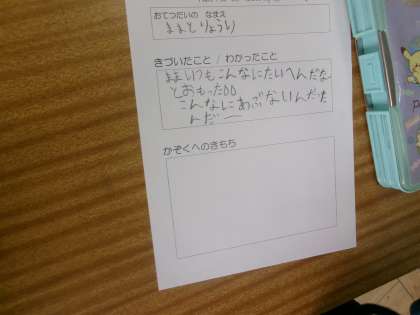 おてつだいの なまえ
ままとりょうり
きづいたこと / わかったこと
ままいつもこんなにたいへんだな
とおもった
こんなにあぶないんだた
んだー
かぞくへのきもち